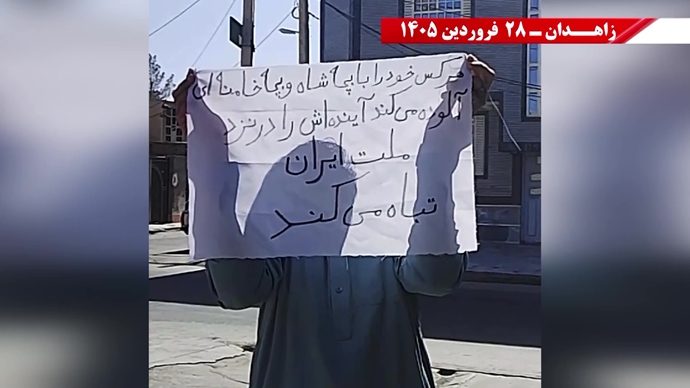 زاهـدان ـ ۲۸ فروردین ۱۴۰۵
هر کس خود را با بچهٔ شاه و بچهٔ خامنه‌ای
آلوده می‌کند آینده‌اش را در نزد
ملت ایران
تباه می‌کند